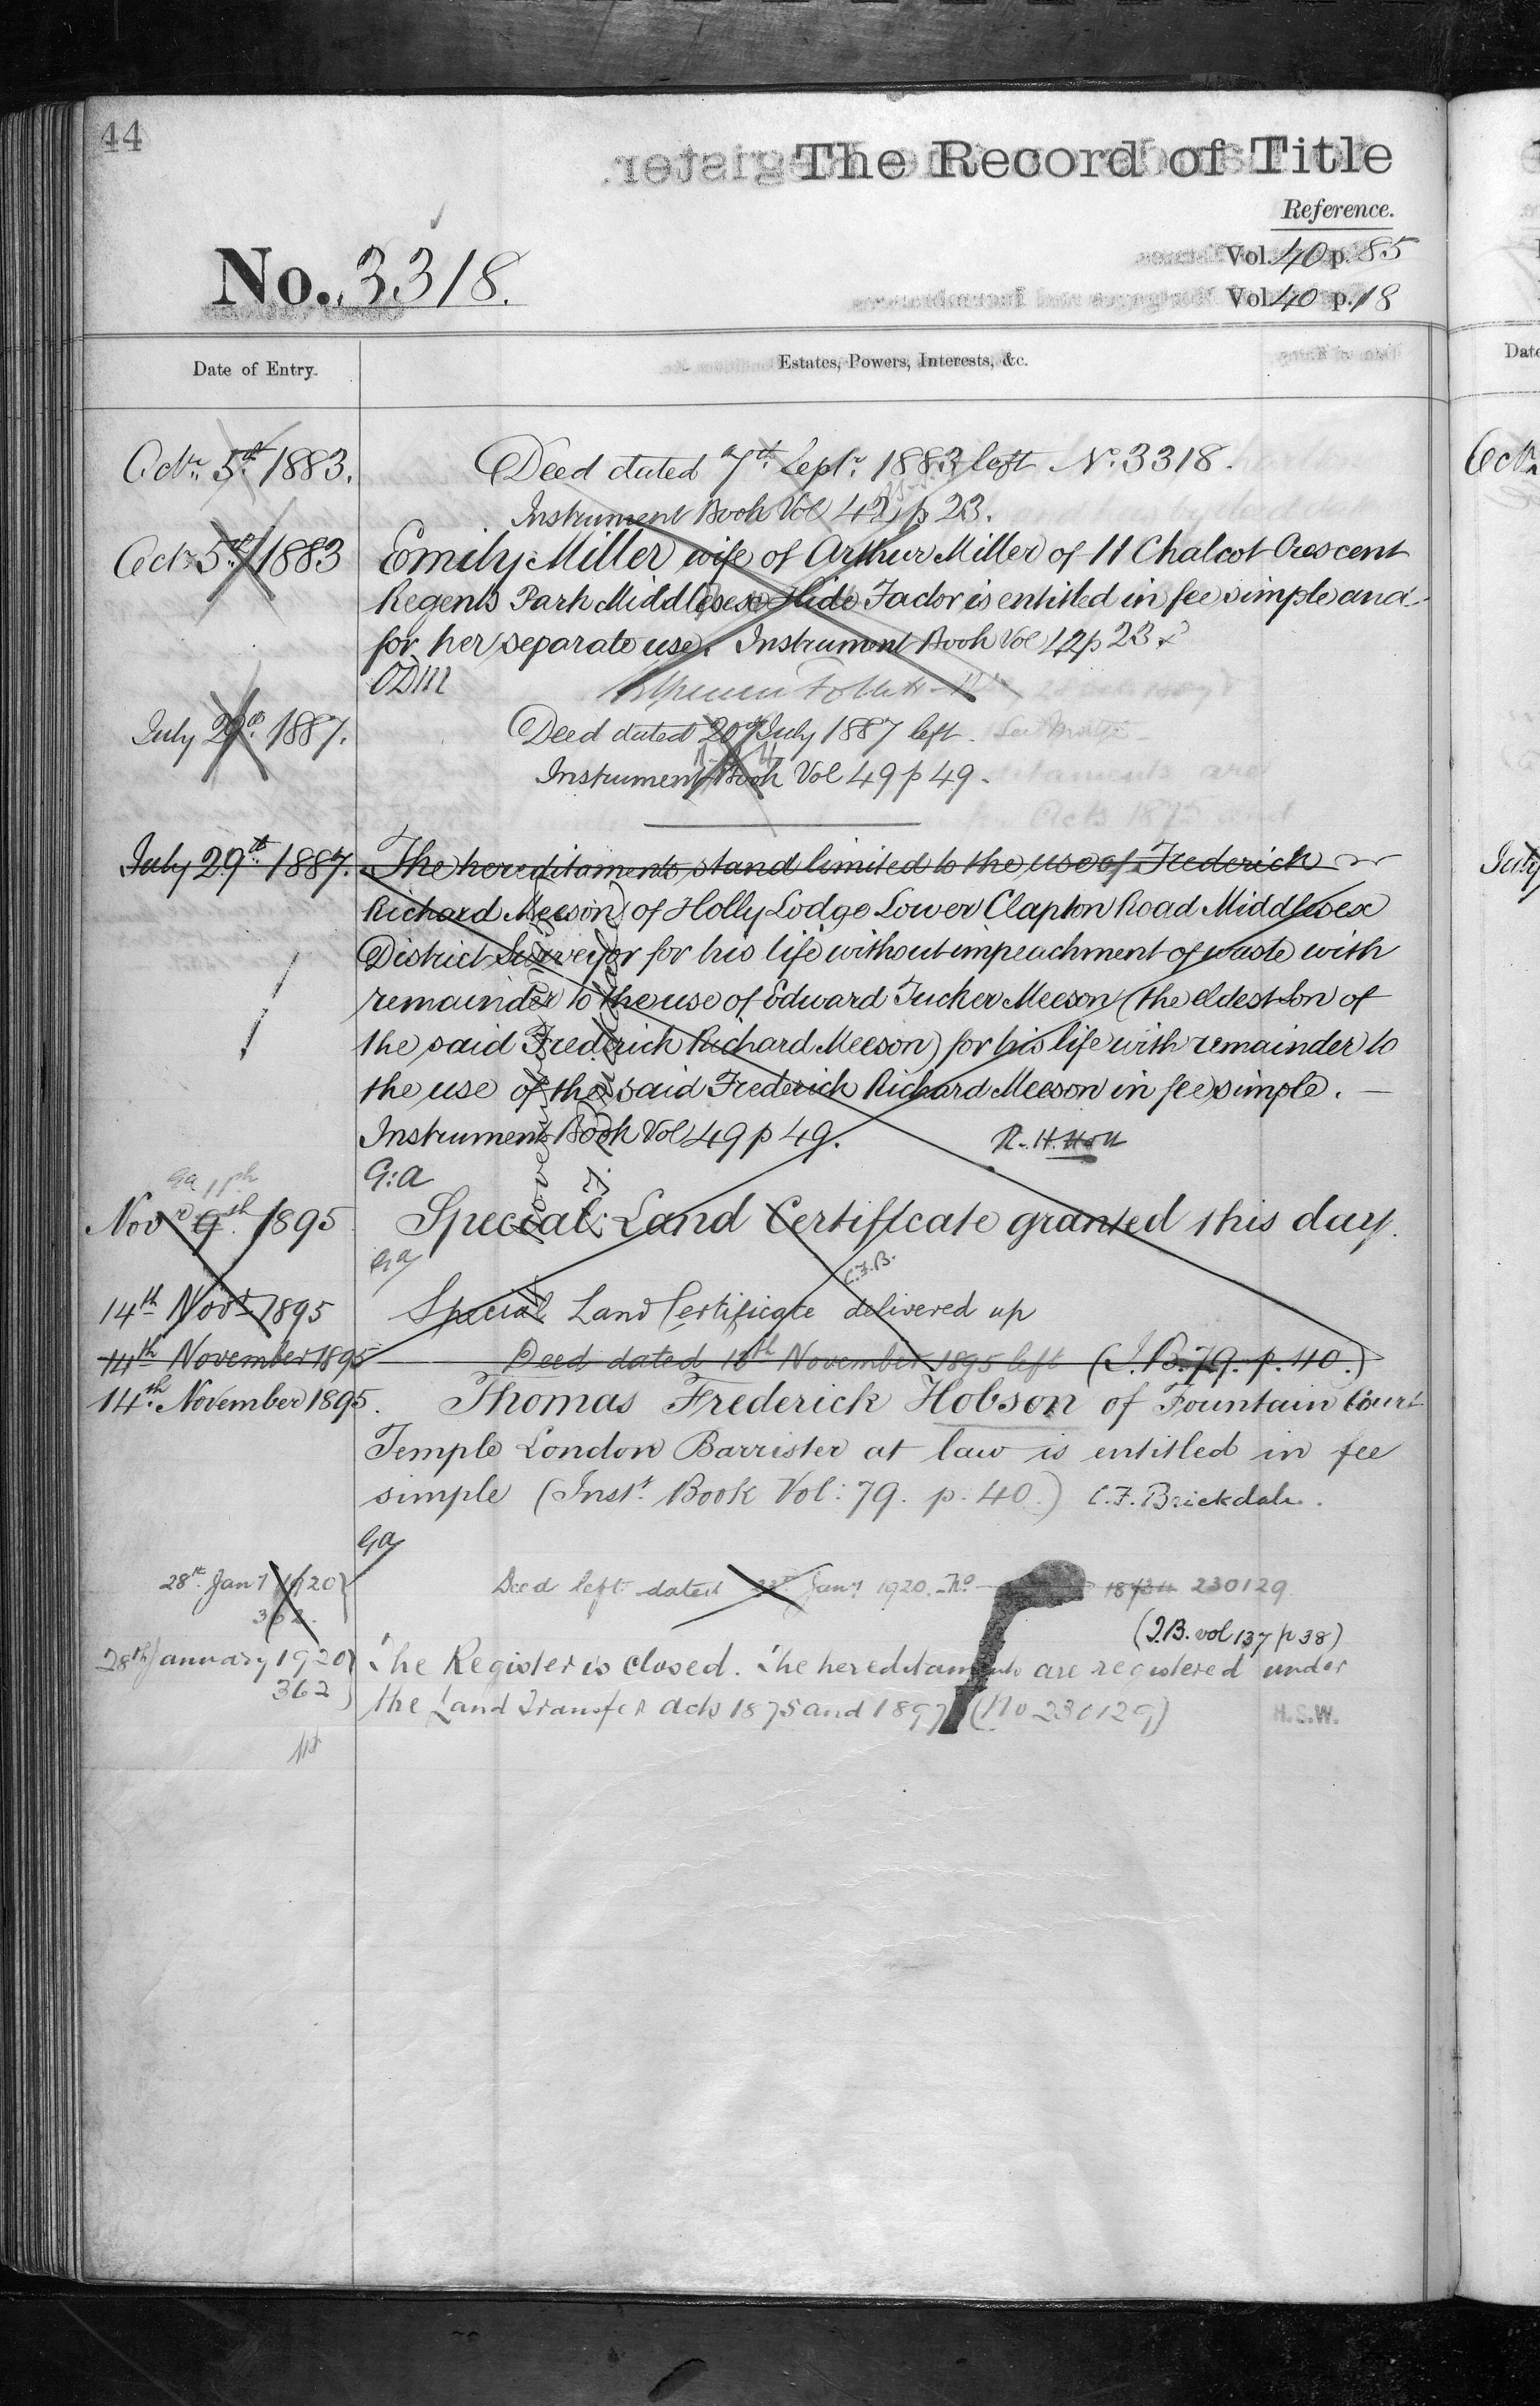 44
The Record of Title
Reference.
Vol. 40 p. 85
Vol. 40 p. 18
No. 3318.
Date of Entry.
Estates, Powers, Interests, &c.
Octr. 5th. 1883.
Deed dated 7th. Septr. 1883 left No. 3318.
Instrument Book Vol 42 p 23.
Octr. 5th. 1883
Emily Miller wife of Arthur Miller of 11 Chalcot Crescent
Regents Park Middlesex Hide Factor is entitled in fee simple and
for her separate use. Instrument Book Vol 42 p 23
July 29th. 1887.
Deed dated 20th July 1887 left.
Instrument Book Vol 49 p 49.
July 29th. 1887.
The hereditaments stand limited to the use of Frederick
Richard Meeson of Holly Lodge Lower Clapton Road Middlesex
District Surveyor for his life without impeachment of waste with
remainder to the use of Edward Tucker Meeson (the eldest Son of
the said Frederick Richard Meeson) for his life with remainder to
the use of the said Frederick Richard Meeson in fee simple. —
Instrument Book Vol 49 p 49.
R. H. Holt
G:a
Novr 9th. 1895
Special Land Certificate granted this day.
Ga
C.F.B.
14th Novr 1895
Special Land Certificate delivered up
14th November 1895
Deed dated 10th November 1895 left (I.B. 79. p. 40.)
14th. November 1895.
Thomas Frederick Hobson of Fountain Court
Temple London Barrister at law is entitled in fee
simple (Inst. Book Vol: 79. p. 40.) C.F. Brickdale.
Ga
28th. Jany 1920
362.
Deed left dated Jany 1920. No 230129
(I.B. vol 137 p 38)
28th January 1920
362
The Register is closed. The hereditaments are registered under
the Land Transfer Acts 1875 and 1897 (No 230129)
H.S.W.
Date
Octr
July